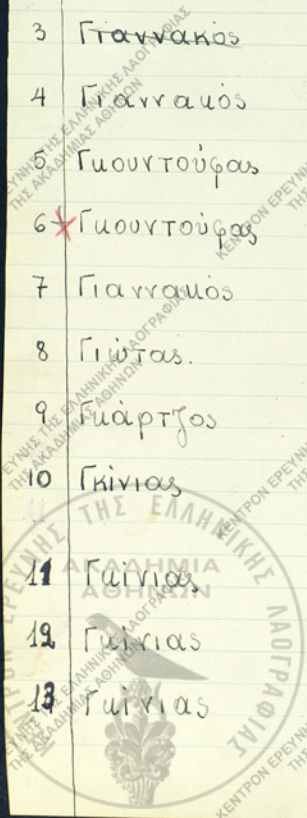 3 Γιαννακός
4 Γιαννακός
5 Γκουντούφας
6 Γκουντούφας
7 Γιαννακός
8 Γιώτας.
9 Γκάρτζος
10 Γκίνιας
11 Γκίνιας
12 Γκίνιας
13 Γκίνιας
ΚΕΝΤΡΟΝ ΕΡΕΥΝΗΣ ΤΗΣ ΕΛΛΗΝΙΚΗΣ ΛΑΟΓΡΑΦΙΑΣ
ΑΚΑΔΗΜΙΑ
ΑΘΗΝΩΝ